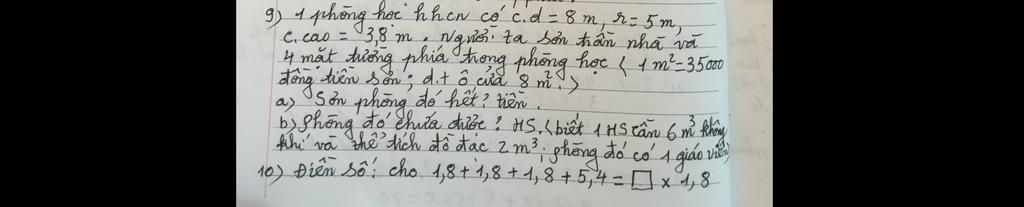 9) 1 phòng học hhcn có c.d = 8 m, r = 5 m,
c.cao = 3,8 m. Người ta sơn trần nhà và
4 mặt tường phía trong phòng học ( 1 m² = 35000
đồng tiền sơn; d.t ô cửa 8 m².)
a) Sơn phòng đó hết? tiền.
b) Phòng đó chứa được? HS. (biết 1 HS cần 6 m³ không
khí và thể tích đồ đạc 2 m³; phòng đó có 1 giáo viên)
10) Điền số: cho 1,8 + 1,8 + 1,8 + 5,4 = □ x 1,8